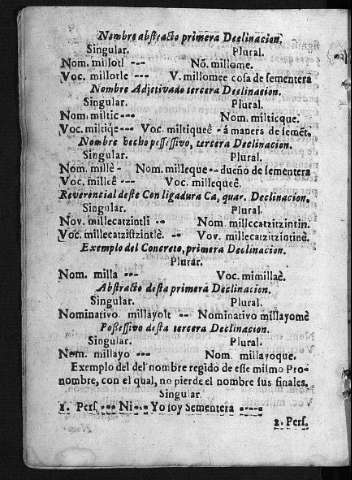 Nombre abstracto primera Declinacion.
Singular. Plural.
Nom. millotl --- Nō. millome.
Voc. millotle --- V. millomee cosa de sementera
Nombre Adjetivado tercera Declinacion.
Singular. Plural.
Nom. miltic --- Nom. milticque.
Voc. milticè --- Voc. miltiqueè - á manera de semēt.
Nombre hecho possessivo, tercera Declinacion.
Singular. Plural.
Nom. millè - Nom. milleque - dueño de sementera
Voc. milleê --- Voc. millequeê.
Reverencial deste Con ligadura Ca, quar. Declinacion.
Singular. Plural.
Nov. millecatzintli -- Nom. millecatzitzintin.
Voc. millecatzitzintlè. -- Vov. millecatzitzintinè.
Exemplo del Concreto, primera Declinacion.
Plurar.
Nom. milla --- Voc. mimillaè.
Abstracto desta primera Declinacion.
Singular. Plural.
Nominativo millayotl -- Nominativo millayomè
Possessivo desta tercera Declinacion.
Singular. Plural.
Nom. millayo --- Nom. millayoque.
Exemplo del del nombre regido de este mismo Pro-
nombre, con el qual, no pierde el nombre sus finales.
Singular
1. Pers. --- Ni--- Yo soy Sementera ----
2. Pers.